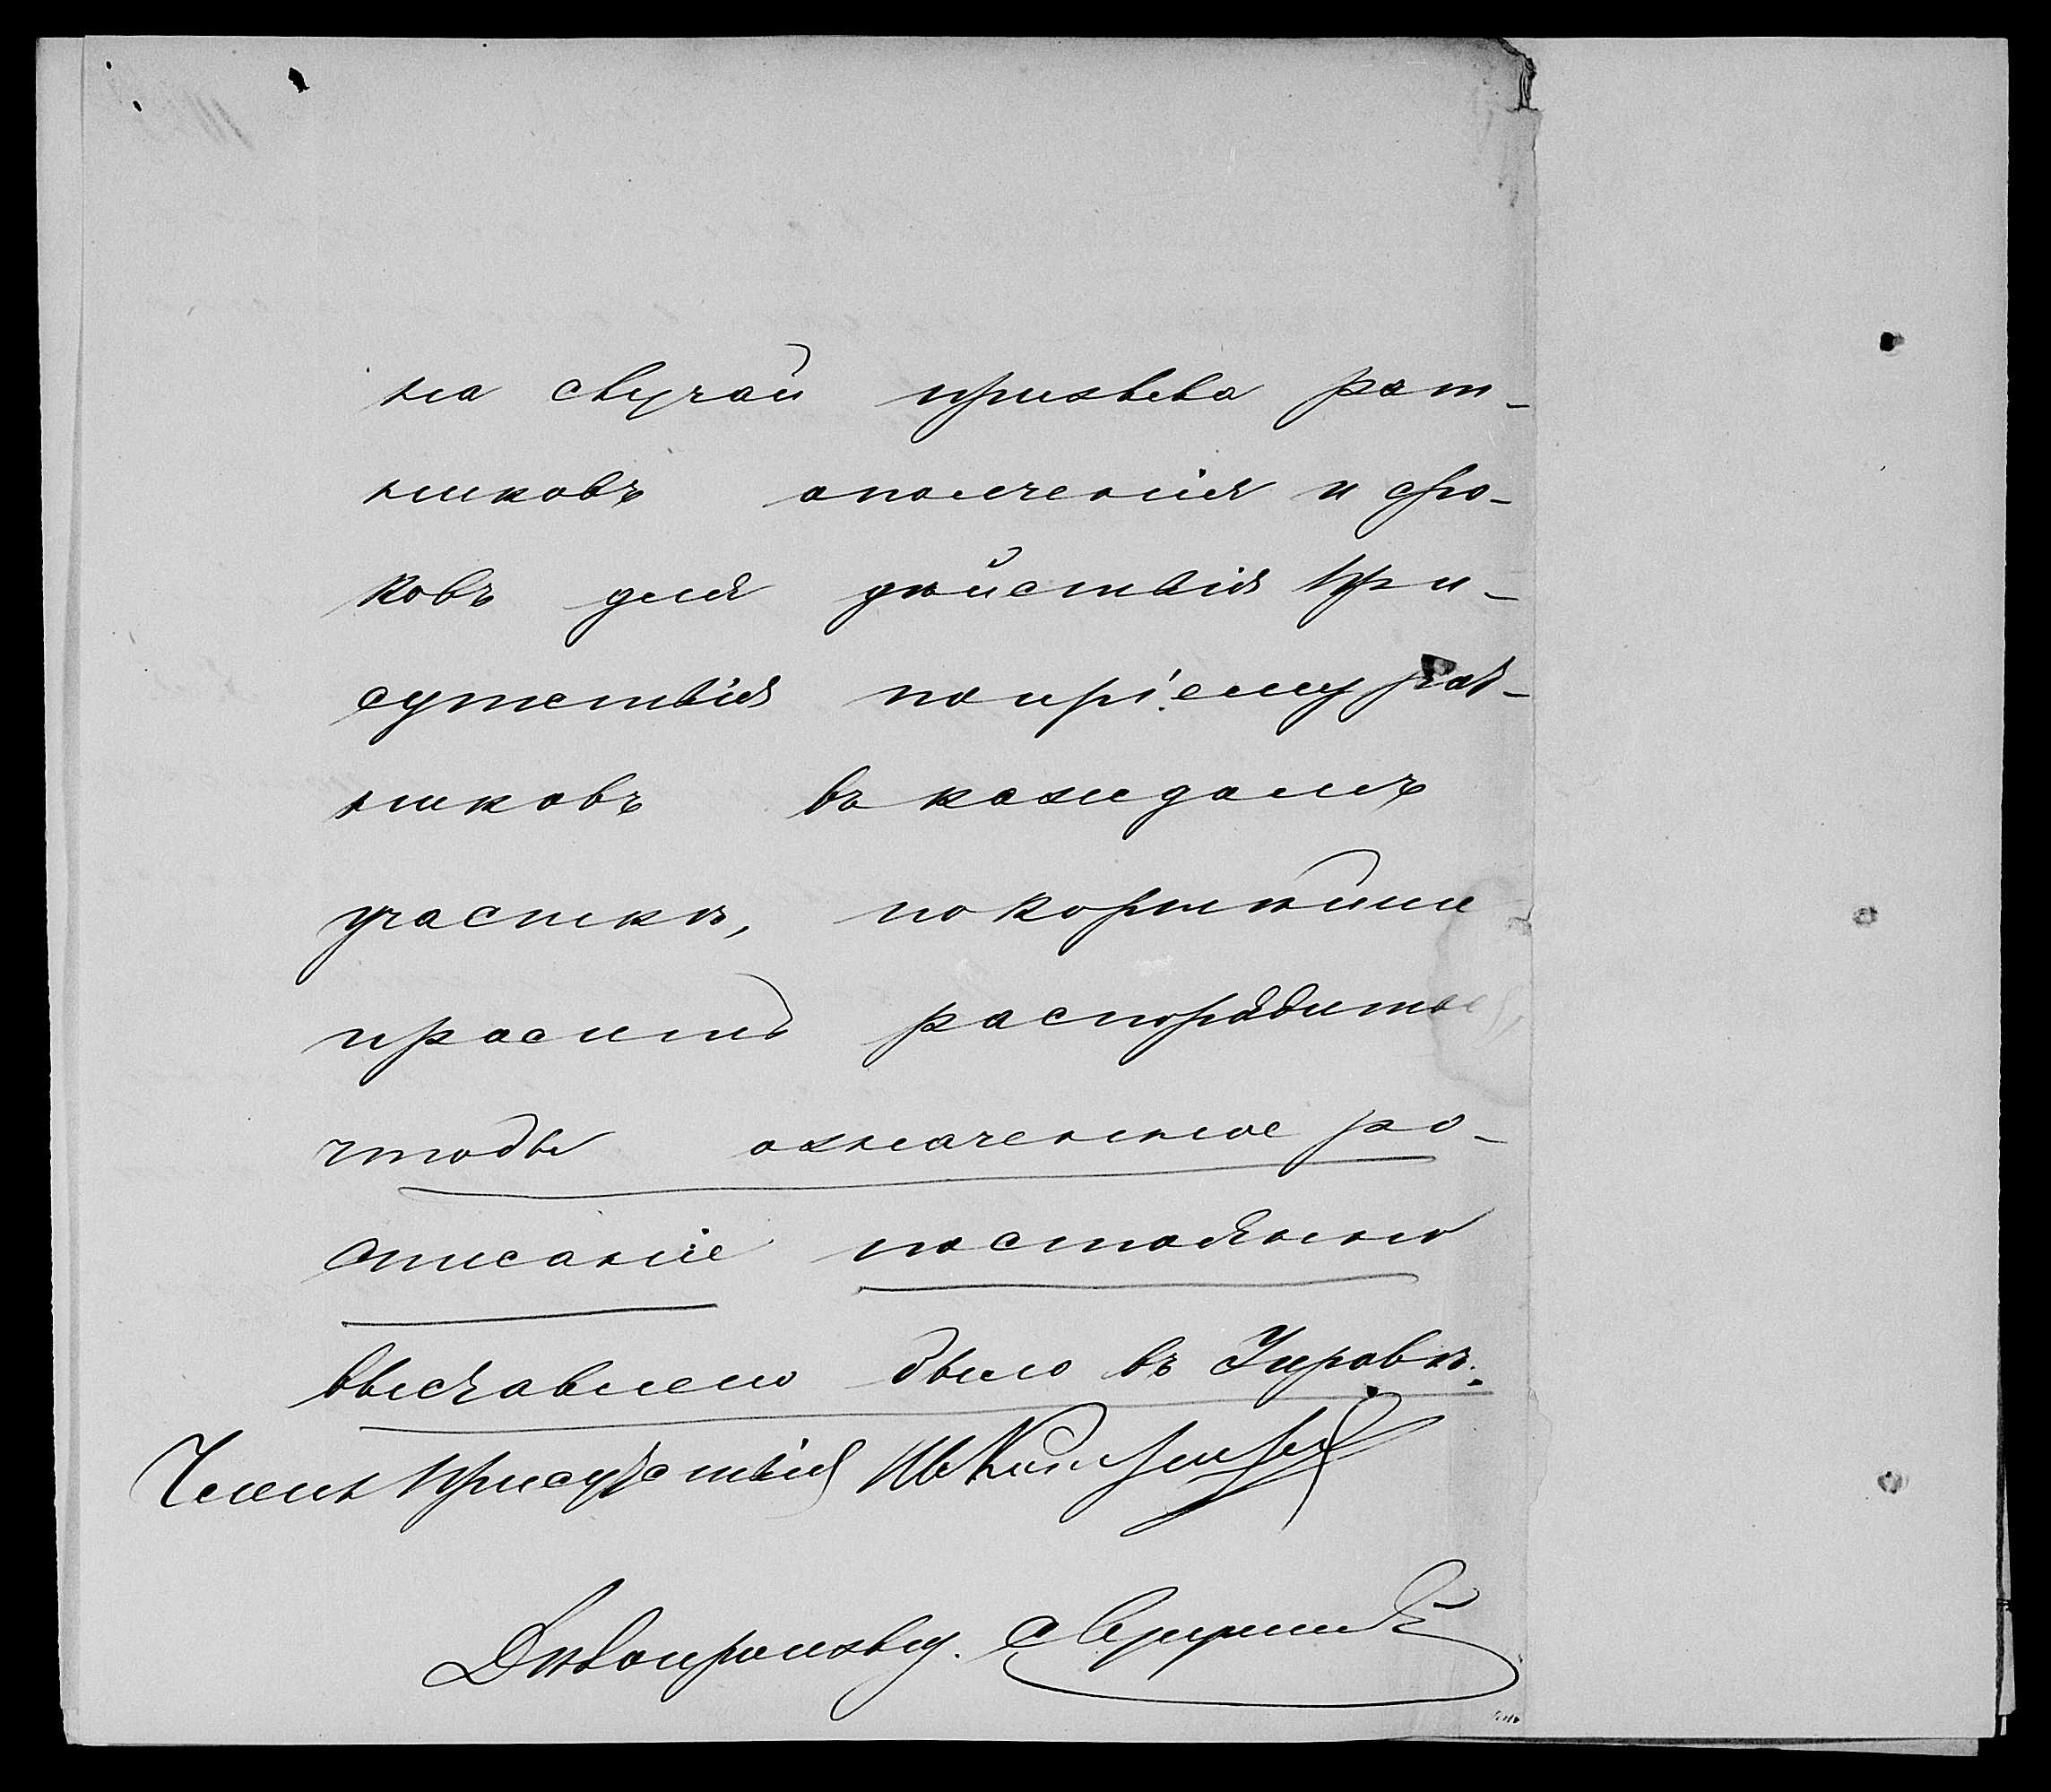 на случай призыва рат-
никовъ ополченія и сро-
ковъ для дѣйствія при-
сутствія по пріему рат-
никовъ въ каждомъ
участкѣ, покорнѣйше
проситъ распорядиться,
чтобы означенное ро-
списаніе постоянно
выставлено было въ Управѣ.
Членъ Присутствія
Дѣлопроизв.